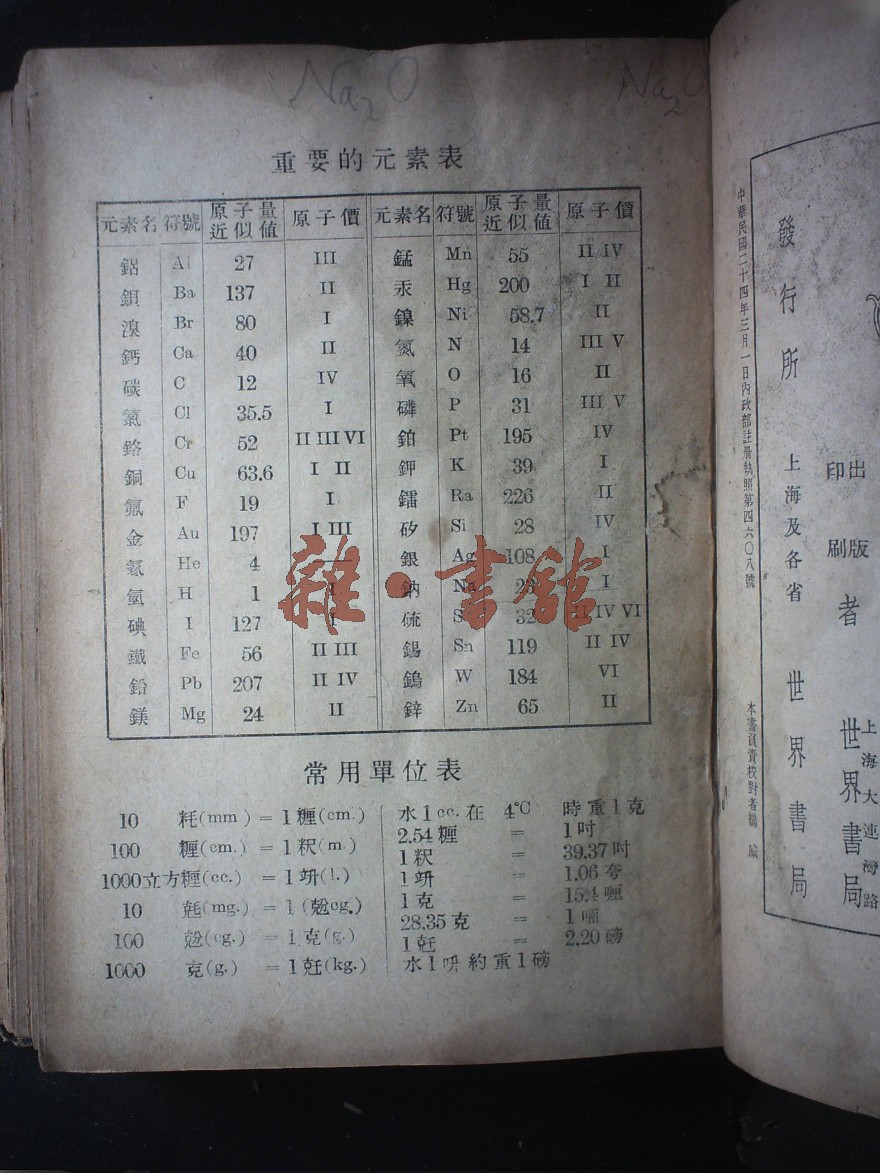 Na₂O Na₂O
重要的元素表
元素名 符號 原子量近似值 原子價 元素名 符號 原子量近似值 原子價
鋁 Al 27 III 錳 Mn 55 II IV
鋇 Ba 137 II 汞 Hg 200 I II
溴 Br 80 I 鎳 Ni 58.7 II
鈣 Ca 40 II 氮 N 14 III V
碳 C 12 IV 氧 O 16 II
氯 Cl 35.5 I 磷 P 31 III V
鉻 Cr 52 II III VI 鉑 Pt 195 IV
銅 Cu 63.6 I II 鉀 K 39 I
氟 F 19 I 鐳 Ra 226 II
金 Au 197 I III 矽 Si 28 IV
氦 He 4 — 銀 Ag 108 I
氫 H 1 I 鈉 Na 23 I
碘 I 127 I 硫 S 32 II IV VI
鐵 Fe 56 II III 錫 Sn 119 II IV
鉛 Pb 207 II IV 鎢 W 184 VI
鎂 Mg 24 II 鋅 Zn 65 II
雜·書館
常用單位表
10 粍(mm) = 1糎(cm.) 水1cc.在 4℃ 時重1克
100 糎(cm.) = 1粎(m.) 2.54糎 = 1吋
1000立方糎(cc.) = 1竔(l.) 1粎 = 39.37吋
10 兞(mg.) = 1(兝cg.) 1竔 = 1.06夸
100 兝(cg.) = 1克(g.) 1克 = 15.4
1000 克(g.) = 1兛(kg.) 28.35克 = 1
1兛 = 2.20磅
水1 約重1磅
中華民國二十四年三月一日內政部註册執照第四六〇八號
本書負責校對者楊
發行所 上海及各省 世界書局
出版者
印刷
上海大連灣路
世界書局